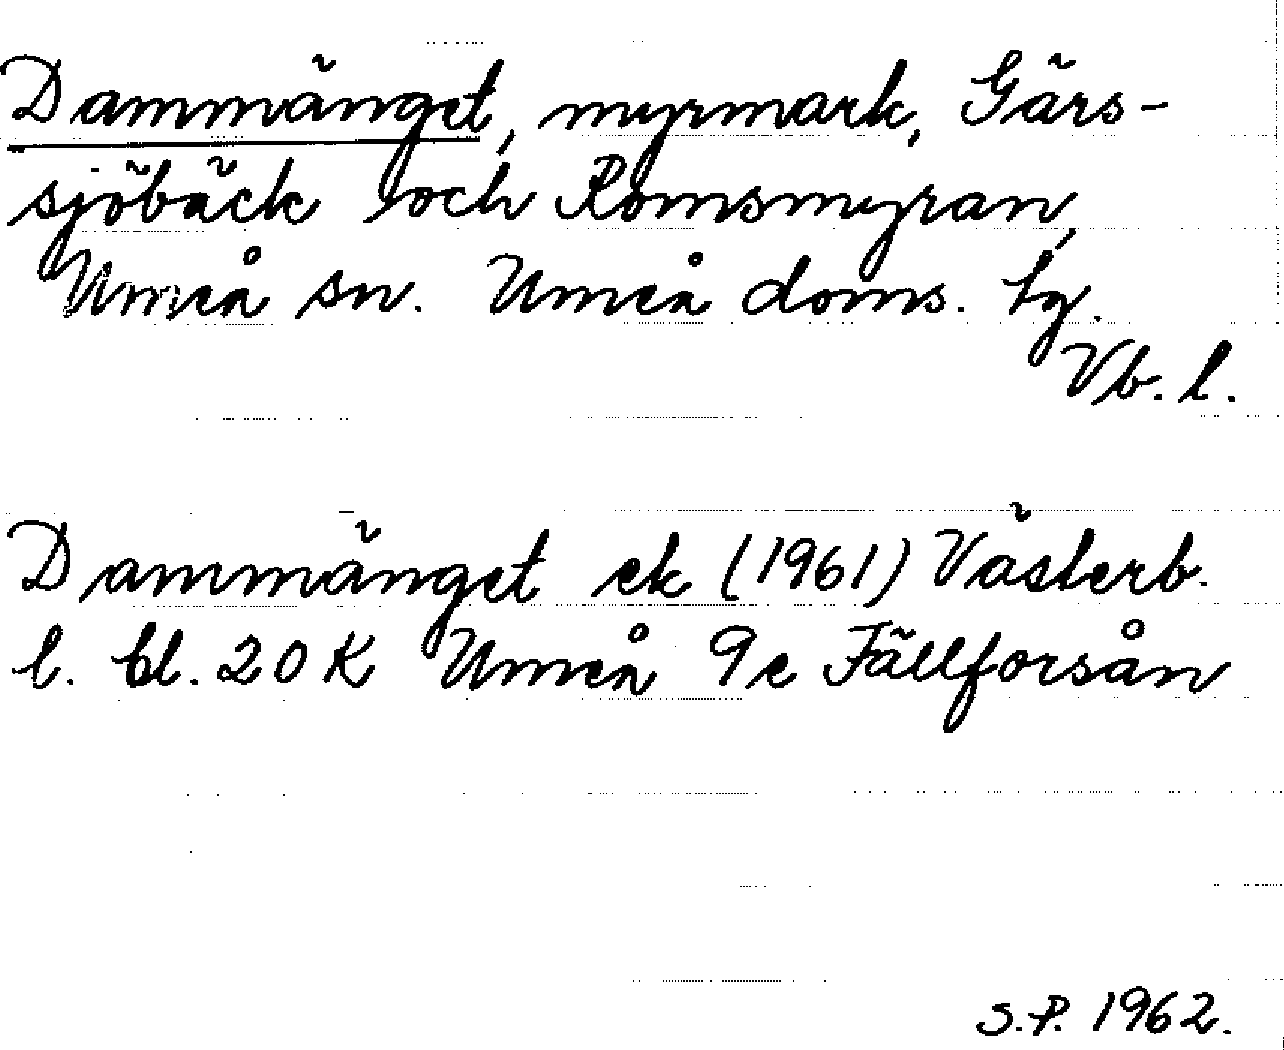 Dammänget, myrmark, Gärs-
sjöbäck och Romsmyran,
Umeå sn. Umeå doms. lg.
Vb. l.
Dammänget ek (1961) Västerb.
l. bl. 20 K Umeå 9e Fällforsån
S.P. 1962.